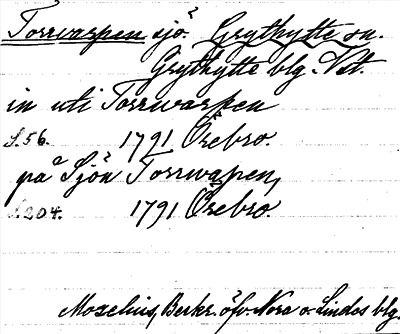 Torrvarpen sjö. Grythytte sn.
Grythytte blg. Vst.
in uti Torrwarpen
S.56. 1791 Örebro.
på Sjön Torrwapen,
S.204. 1791 Örebro.
Mozelius, Berkr. öfv. Nora o. Lindes blg.